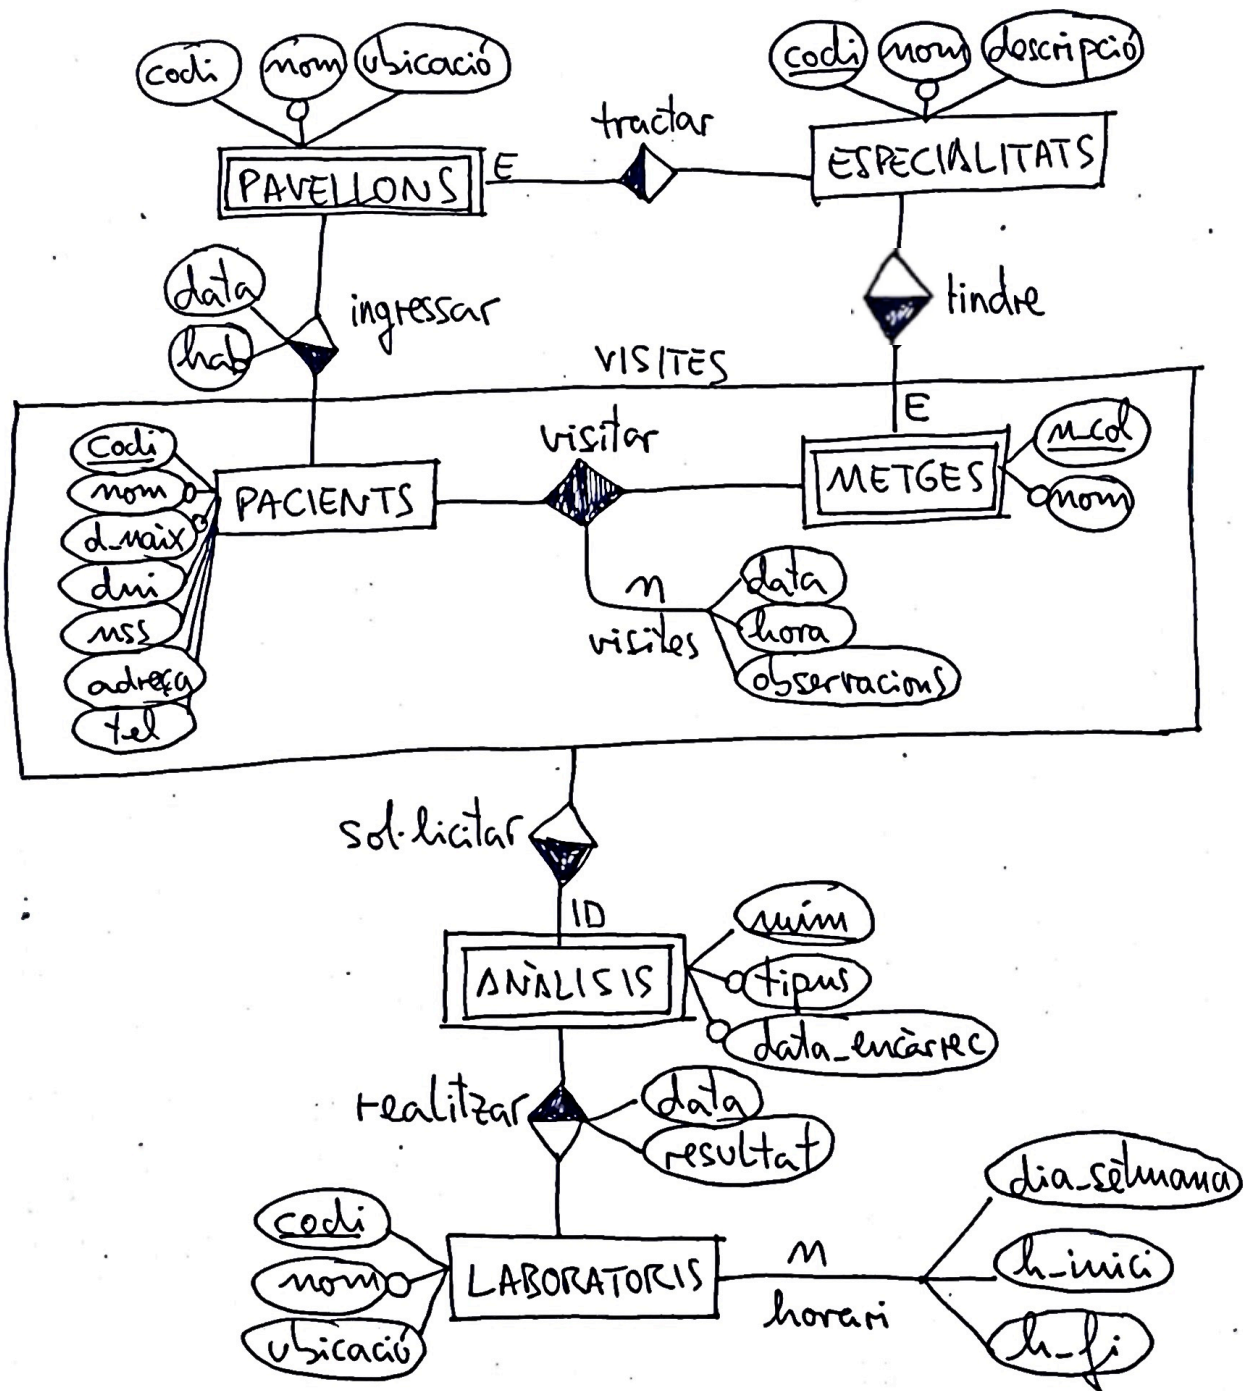 codi nom ubicació
codi nom descripció
tractar
PAVELLONS E
ESPECIALITATS
data
hab
ingressar
tindre
VISITES
E
codi
nom
d_naix
dni
nss
adreça
tel
PACIENTS
visitar
METGES
n_col
nom
n
visites
data
hora
observacions
sol·licitar
ID
ANÀLISIS
núm
tipus
data_encàrrec
realitzar
data
resultat
codi
nom
ubicació
LABORATORIS
n
horari
dia_setmana
h_inici
h_fi